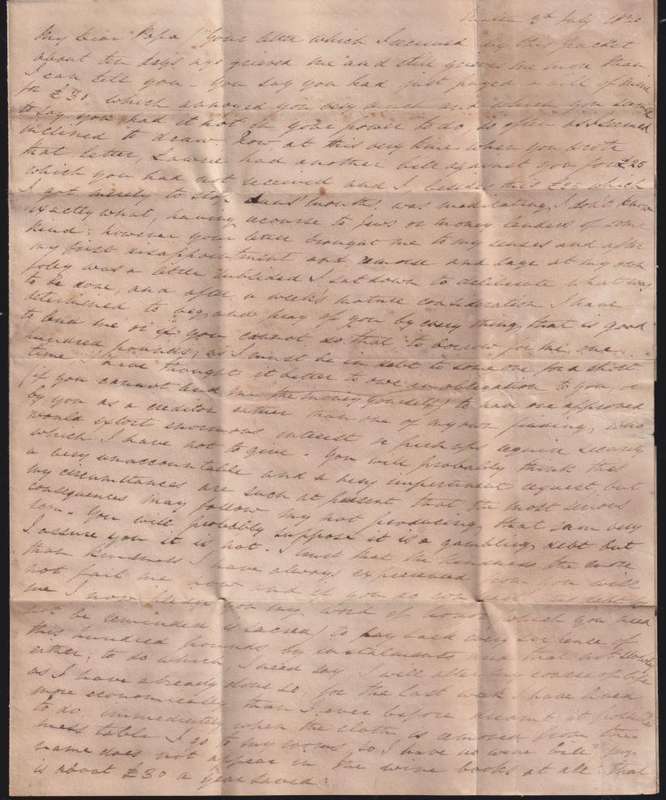 2d July 18
My dear Papa Your letter which I received by this packet
about ten days ago grieved me and still grieves me more than
I can tell you. You say you had just payed a bill of mine
for £30 which annoyed you very much and which you
to say you had it not in your power to do so often as I seemed
inclined to draw. Now at this very time when you wrote
that letter, Lawrie had another bill against you for £25
which you had not received and I besides this £25 which
I got merely to stop mouths was meditating, I don't know
exactly what, having recourse to Jews or money lenders of some
kind: however your letter brought me to my senses and after
my first disappointment and remorse and rage at my own
folly was a little subsided I sat down to deliberate what was
to be done, and after a week's mature consideration I have
determined to beg and pray of you by every thing that is good
to lend me or if you cannot do that to borrow for me one
hundred pounds; as I must be in debt to some one for a short
time I have thought it better to owe an obligation to you, or
(if you cannot lend me the money yourself) to have one approved
by you as a creditor rather than one of my own finding, who
would extort enormous interest or perhaps require security
which I have not to give. You will probably think this
a very unaccountable and a very impertinent request but
my circumstances are such at present that the most serious
consequences may follow my not producing that sum very
soon. You will probably suppose it is a gambling debt but
I assure you it is not. I trust that the kindness the more
than kindness I have always experienced from you will
not fail me now and if you do
me I now pledge you my word of honor which you need
not be reminded is sacred to pay back every sixpence of
this hundred pounds by instalments and that not slowly
either; to do which I need say I will alter my course of life
as I have already done so for the last week I have lived
more economically than I ever before dreamt of
to do immediately when the cloth is removed from the
mess table I go to my rooms, so I have no wine bill my
name does not appear in the wine books at all. That
is about £30 a year saved.